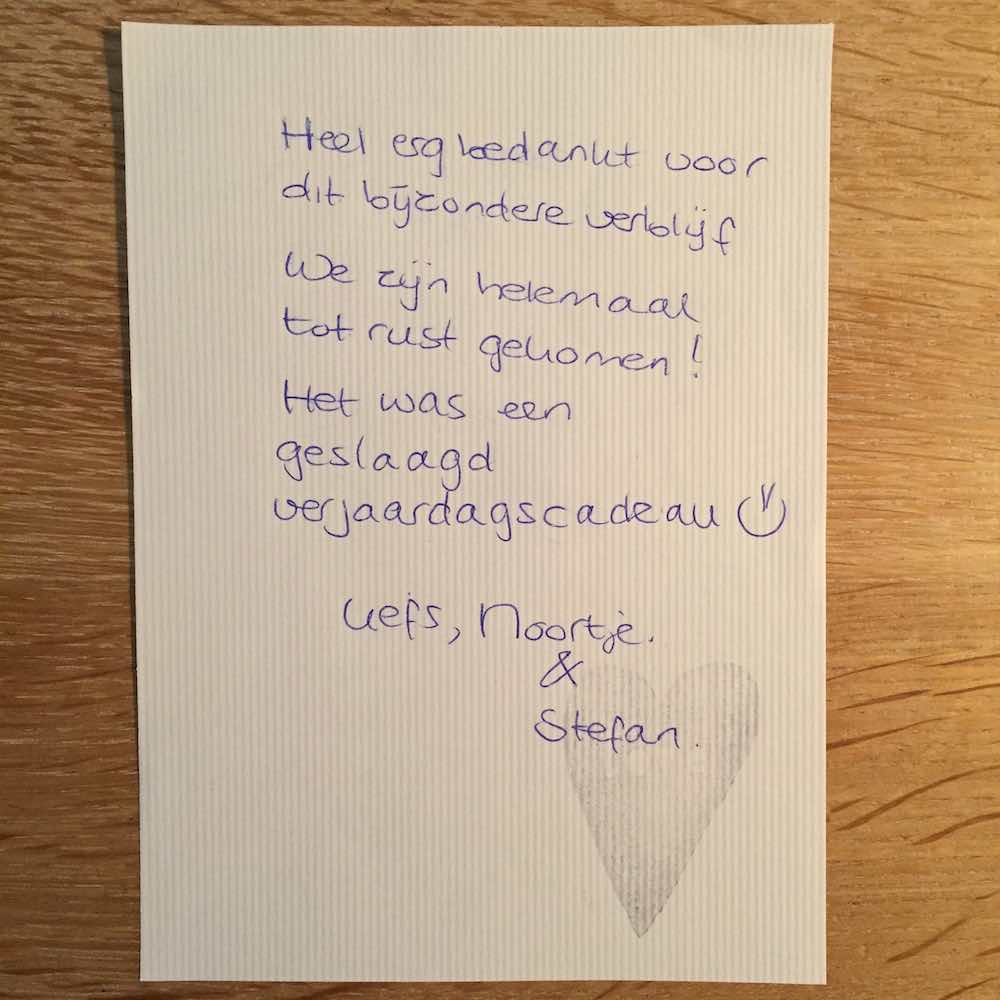 Heel erg bedankt voor
dit bijzondere verblijf
We zijn helemaal
tot rust gekomen!
Het was een
geslaagd
verjaardagscadeau
Liefs, Noortje.
&
Stefan.